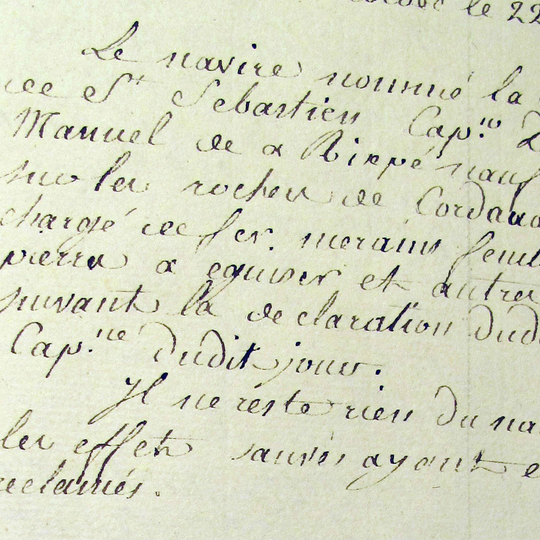 le 22
Le navire nommé la
St Sebastien Cap.ne
Manuel de a
sur les rochers de Cordoua
chargé de fer. merains
pierres a eguiser et autres
suivant la declaration dud
Cap.ne dudit jour.
Il ne reste rien du na
les effets sauvés ayant e
reclamés.